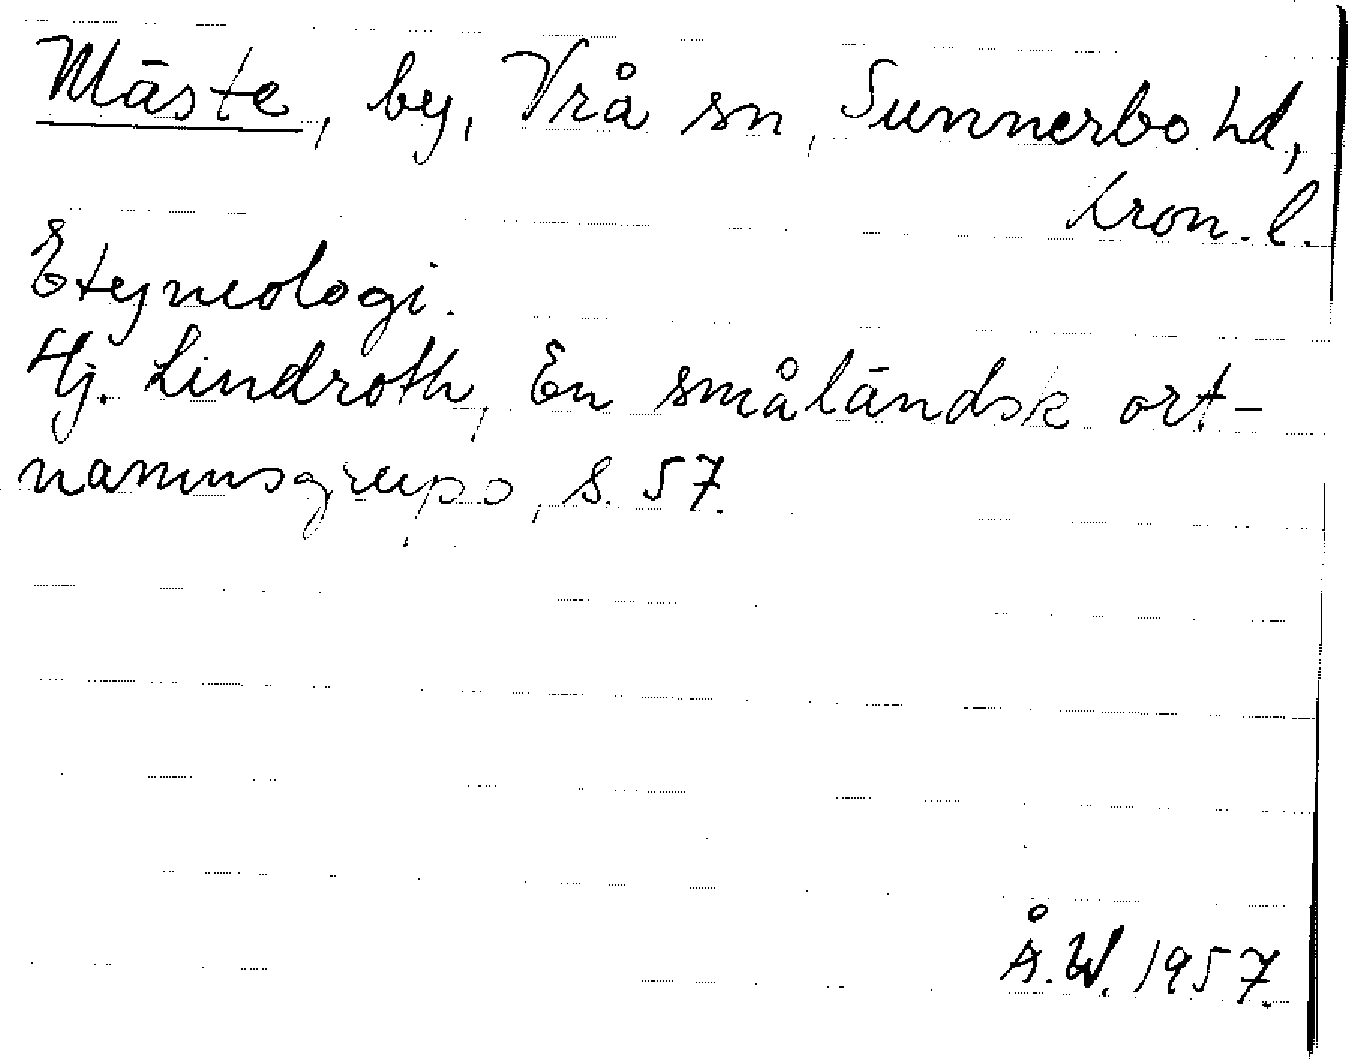 Mäste, by, Vrå sn, Sunnerbo hd,
Kron. l.
Etymologi.
Hj. Lindroth, En småländsk ort-
namnsgrupp, s. 57.
Å.W. 1957.